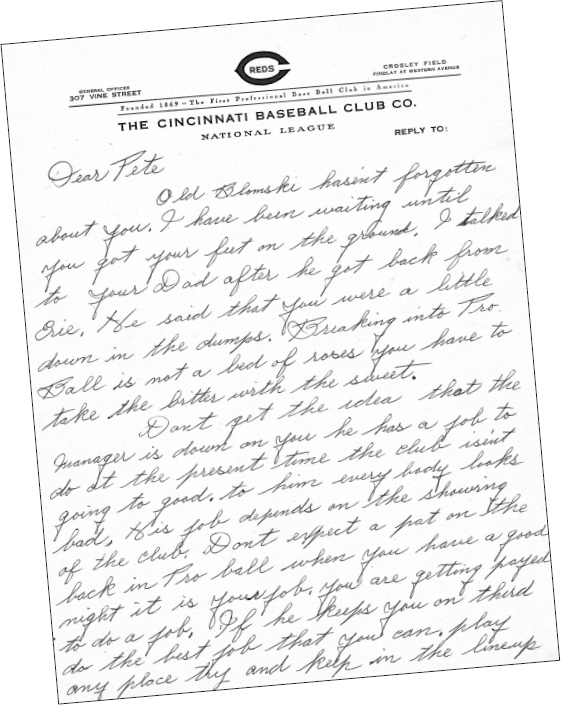 REDS
GENERAL OFFICES
307 VINE STREET
CROSLEY FIELD
FINDLAY AT WESTERN AVENUE
Founded 1869 - The First Professional Base Ball Club in America
THE CINCINNATI BASEBALL CLUB CO.
NATIONAL LEAGUE
REPLY TO:
Dear Pete
Old Blomski hasent forgotten
about you. I have been waiting until
you got your feet on the ground. I talked
to your Dad after he got back from
Erie. He said that you were a little
down in the dumps. Breaking into Pro
Ball is not a bed of roses you have to
take the bitter with the sweet.
Dont get the idea that the
manager is down on you he has a job to
do at the present time the club isent
going to good. to him every body looks
bad. His job depends on the showing
of the club. Dont expect a pat on the
back in Pro ball when you have a good
night it is your job. you are getting payed
to do a job. If he keeps you on third
do the best job that you can. play
any place try and keep in the lineup